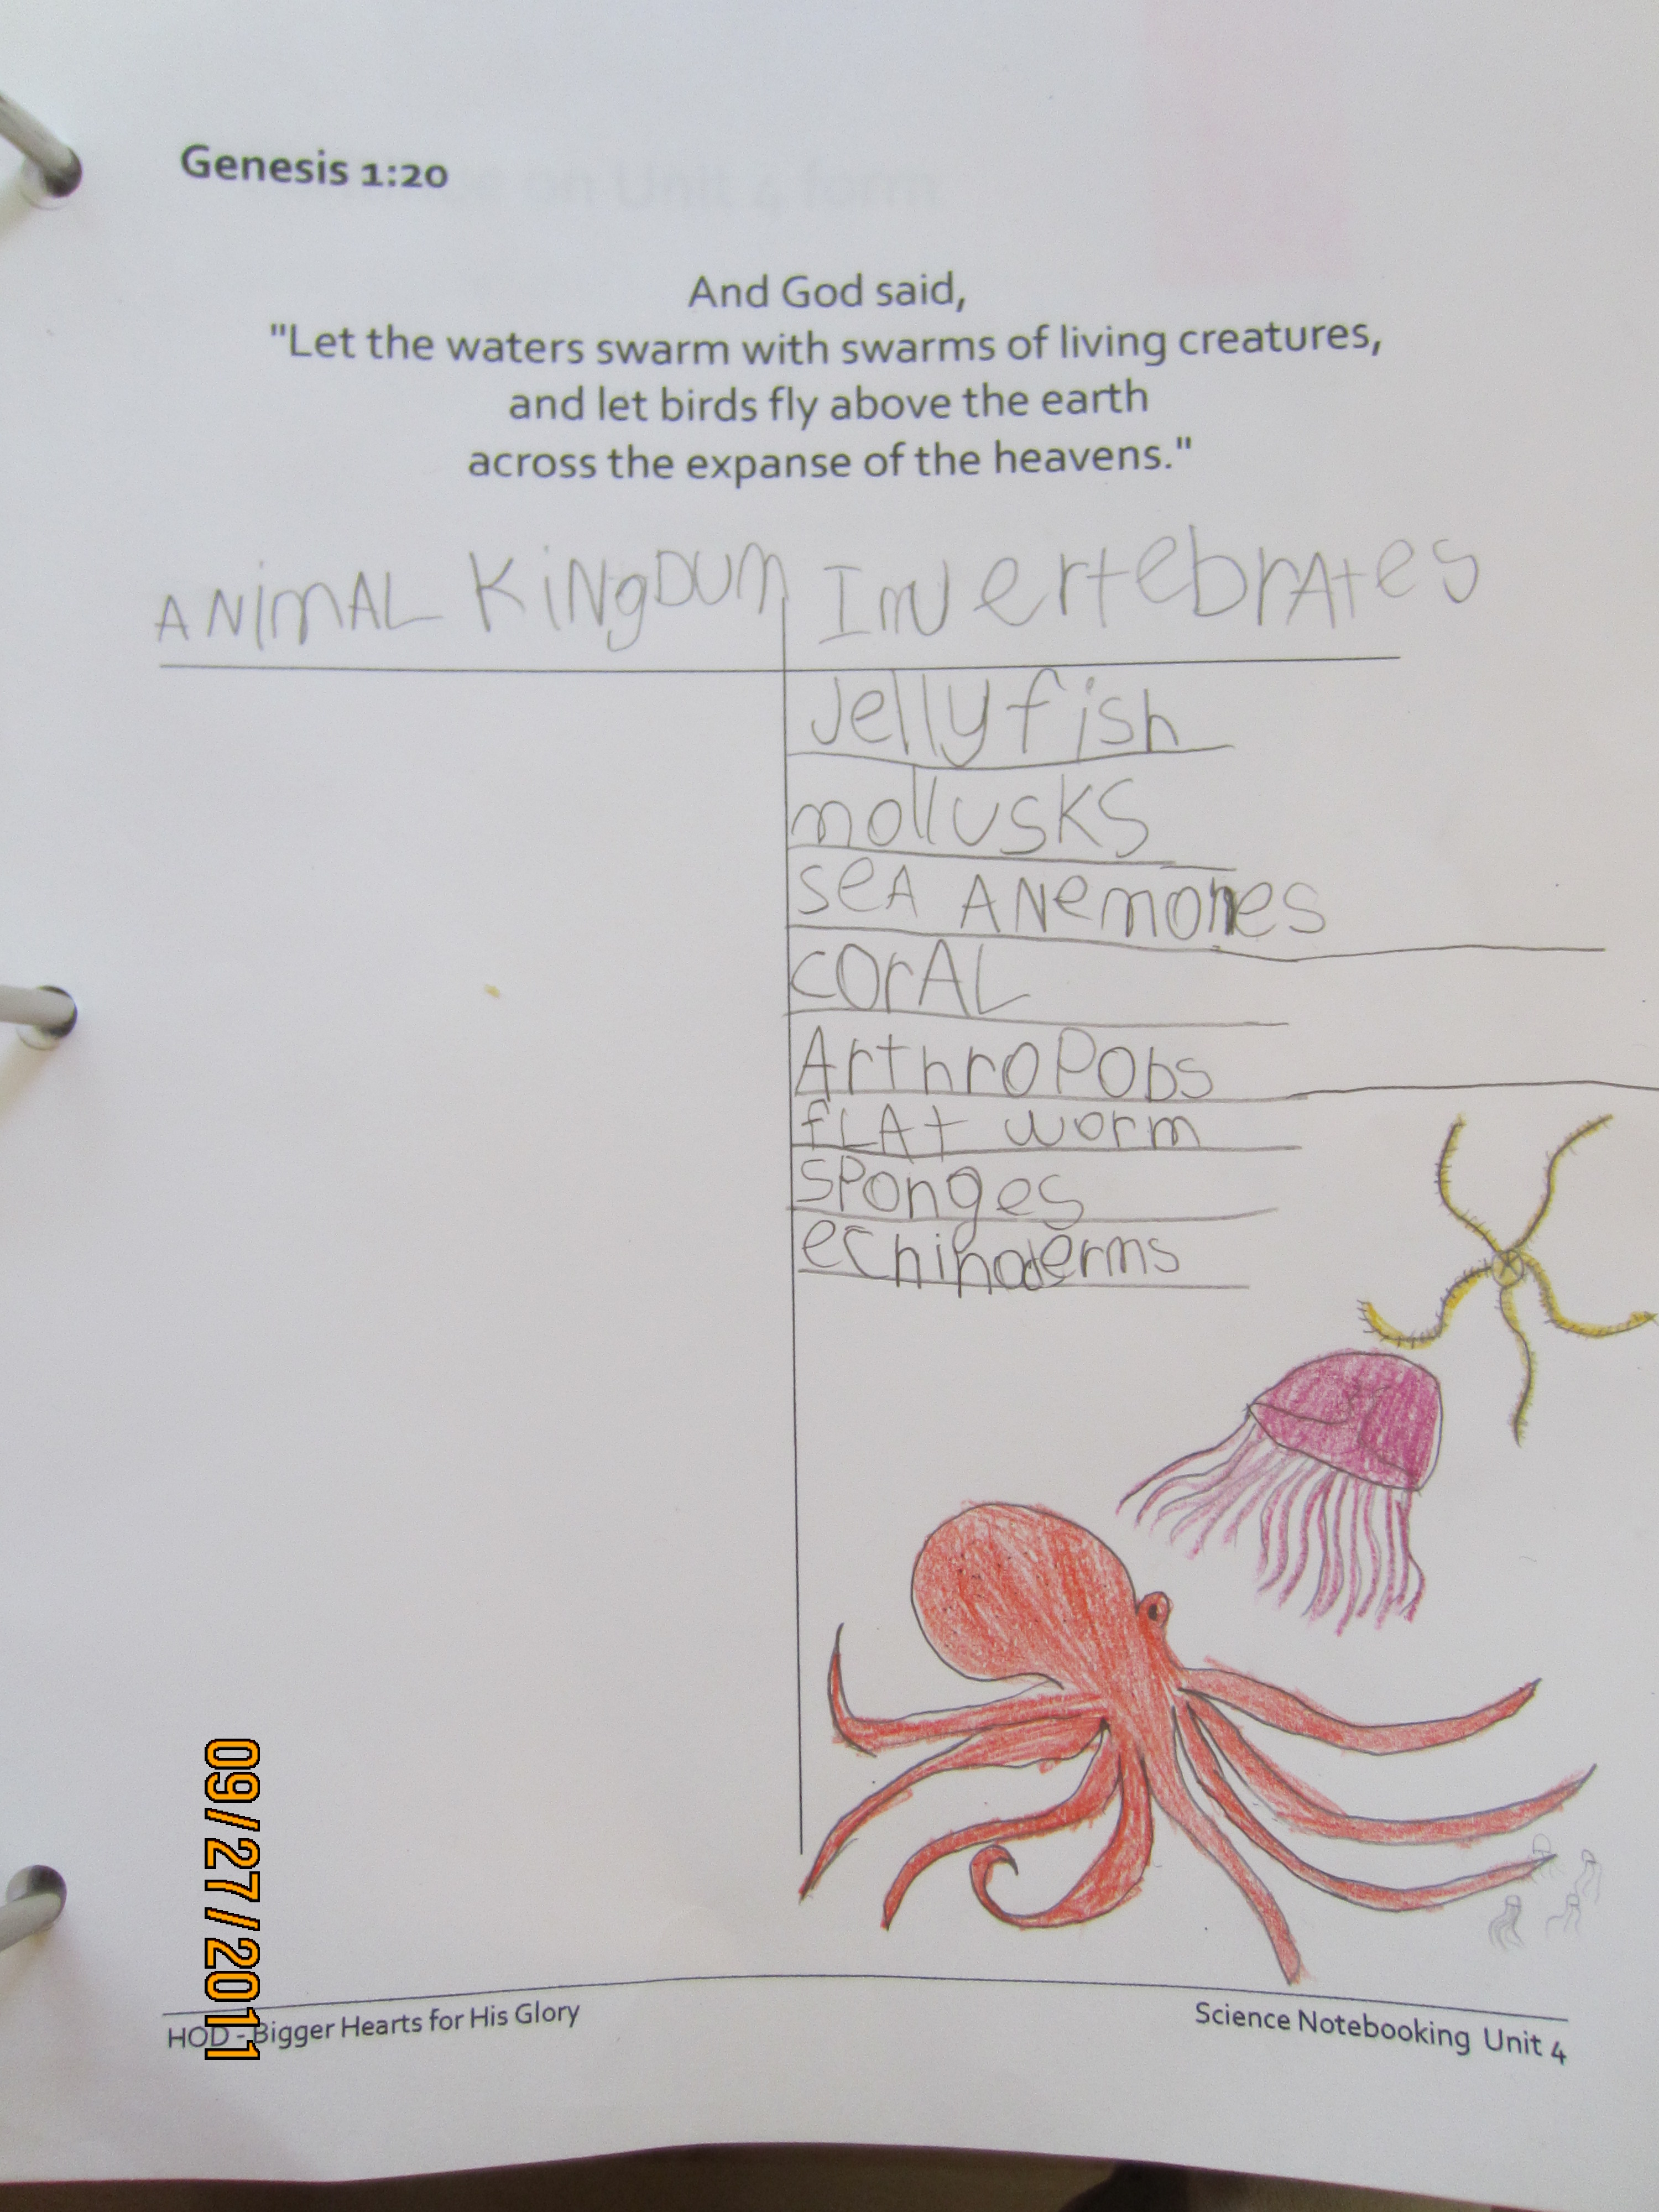 Genesis 1:20
And God said,
"Let the waters swarm with swarms of living creatures,
and let birds fly above the earth
across the expanse of the heavens."
ANimAL KiNgDUm InvertebrAtes
Jellyfish
mollusks
seA ANemones
COrAL
ArthroPobs
fLAt worm
sPonges
echinoderms
09/27/2011
HOD - Bigger Hearts for His Glory
Science Notebooking Unit 4